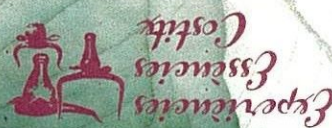 Experiències
Essències
Costitx